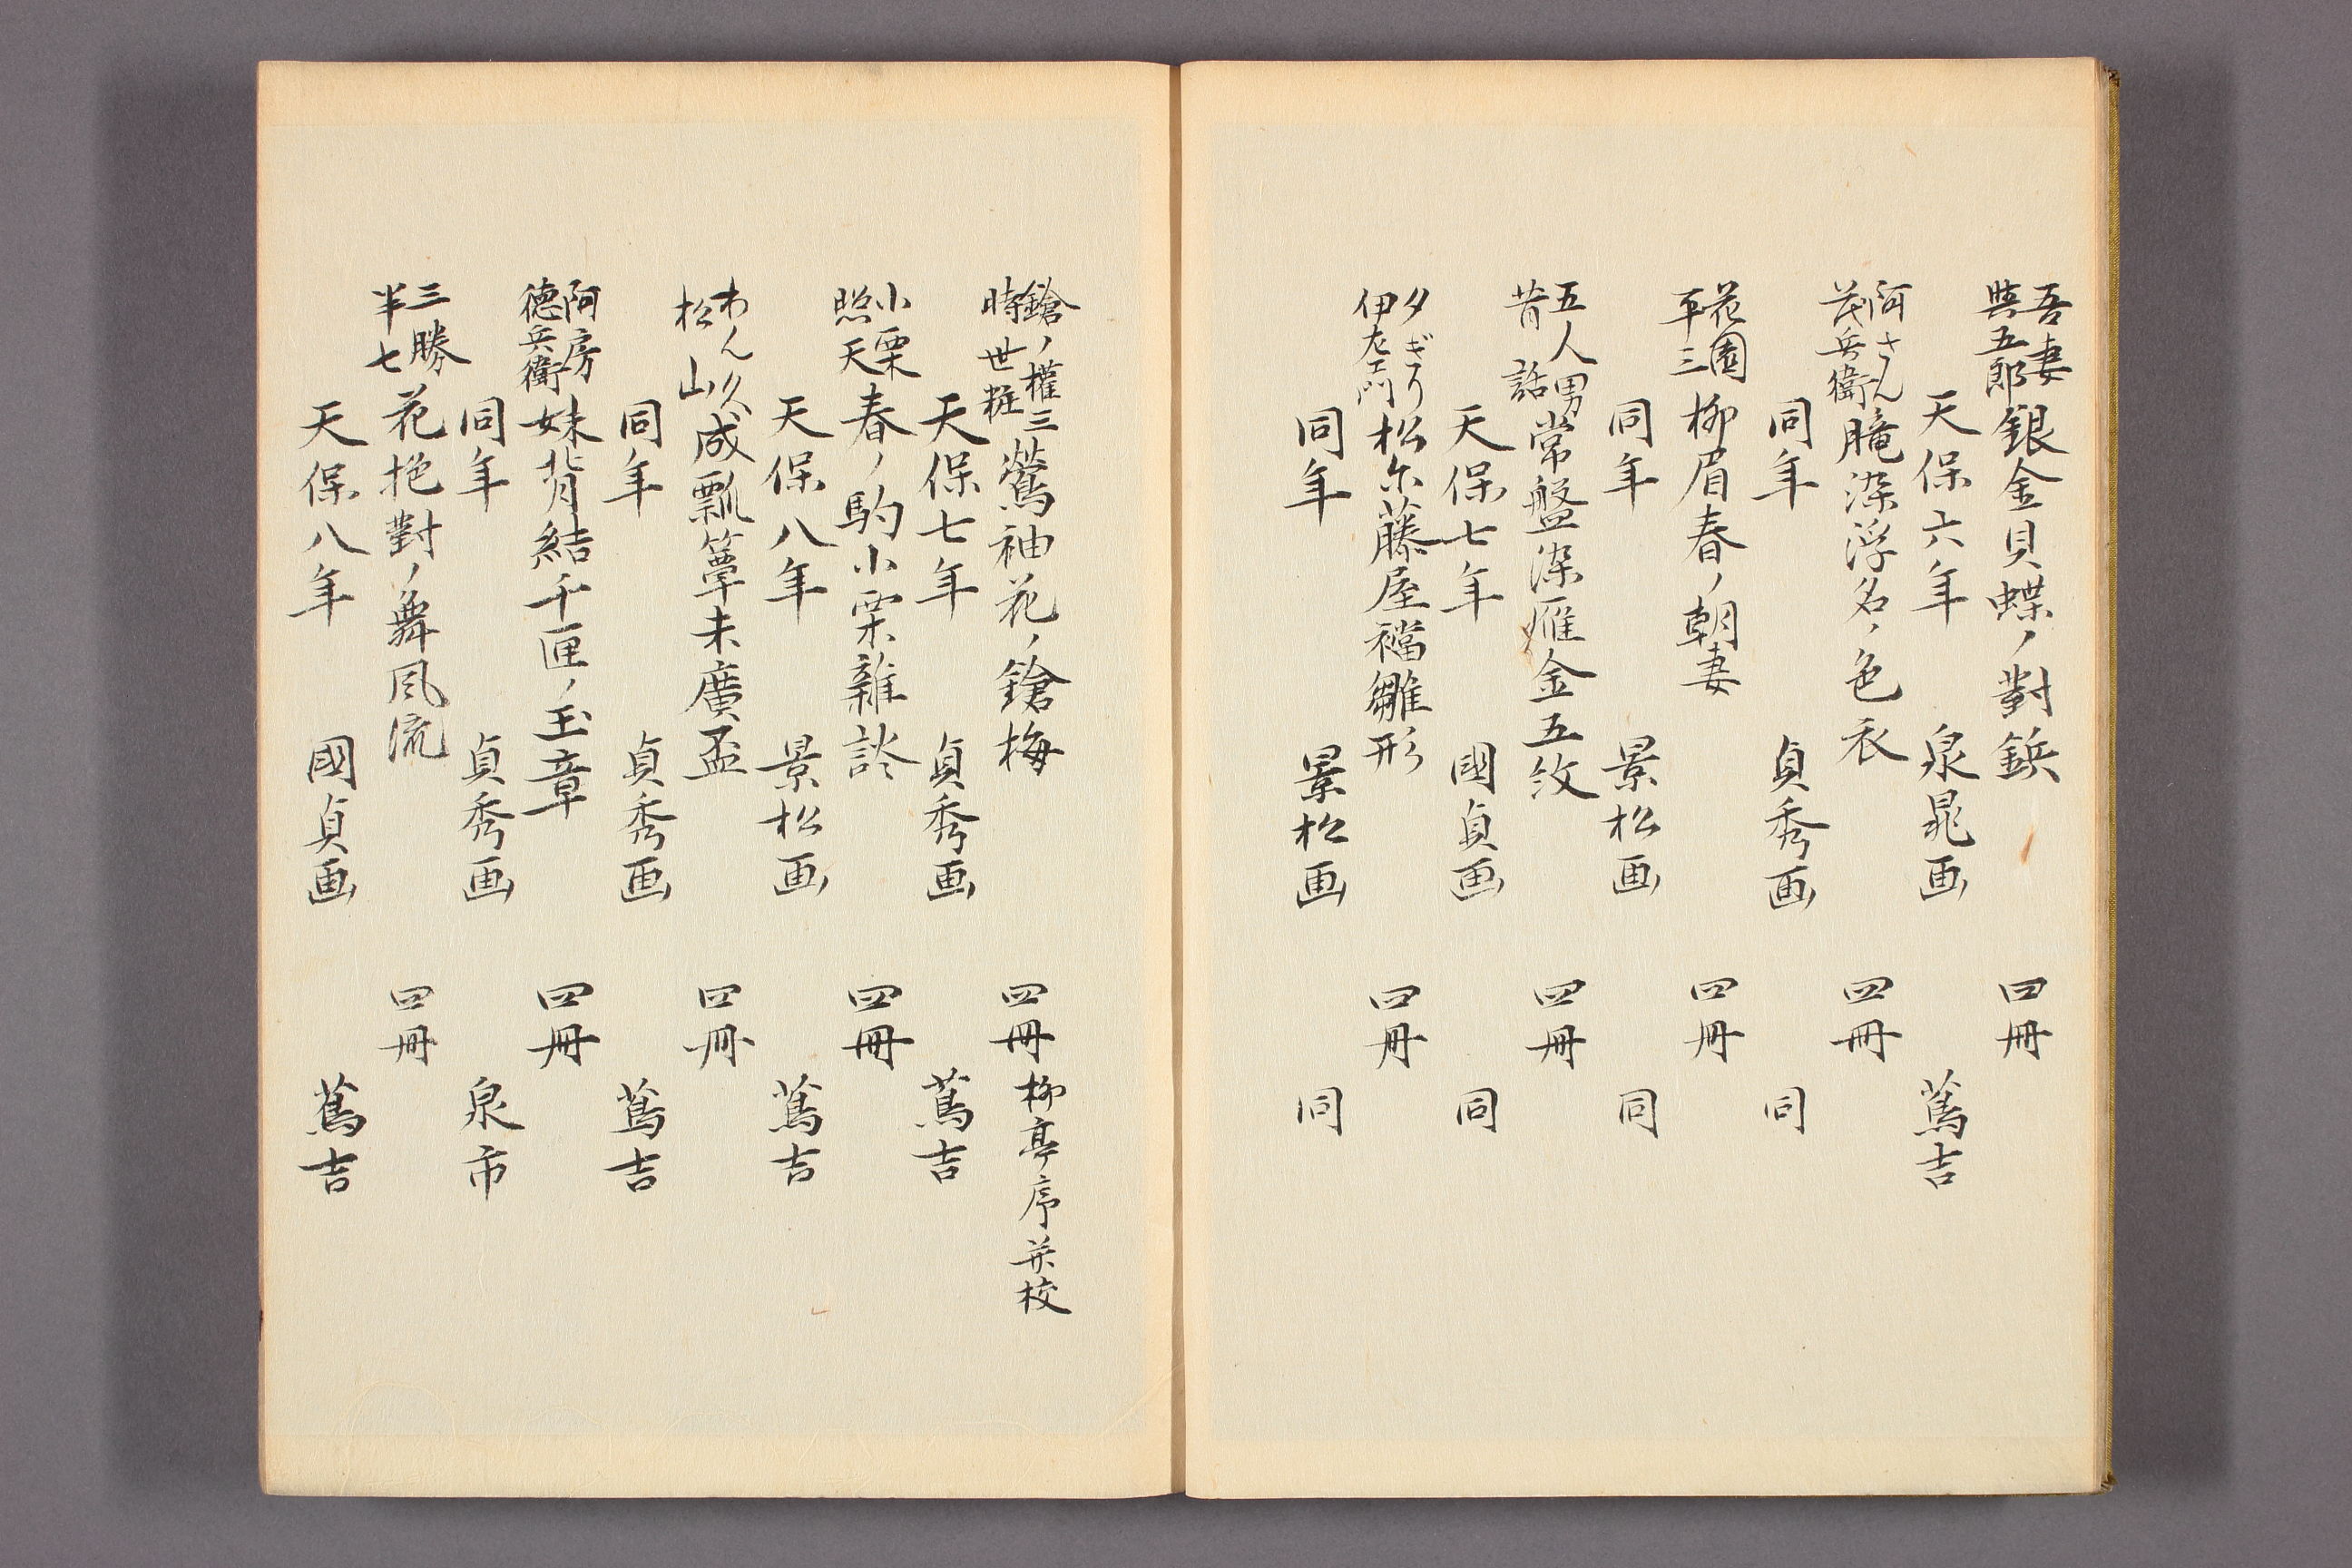 吾妻与五郎 銀金貝蝶ノ對鋲 四冊
天保六年 泉晁画 蔦吉
阿さん茂兵衛 朧染浮名ノ色衣 四冊
同年 貞秀画 同
花園平三 柳眉春ノ朝妻 四冊
同年 景松画 同
五人男昔話 常盤染雁金五紋 四冊
天保七年 國貞画 同
夕ぎり伊左エ門 松尓藤屋襠雛形 四冊
同年 景松画 同
鎗ノ權三時世粧 鶯袖花ノ鎗梅 四冊 柳亭序并校
天保七年 貞秀画 蔦吉
小栗照天 春ノ駒小栗雑談 四冊
天保八年 景松画 蔦吉
わん久松山 成瓢箪末廣盃 四冊
同年 貞秀画 蔦吉
阿房徳兵衛 妹背結千匣ノ玉章 四冊
同年 貞秀画 泉市
三勝半七 花抱對ノ舞風流 四冊
天保八年 國貞画 蔦吉